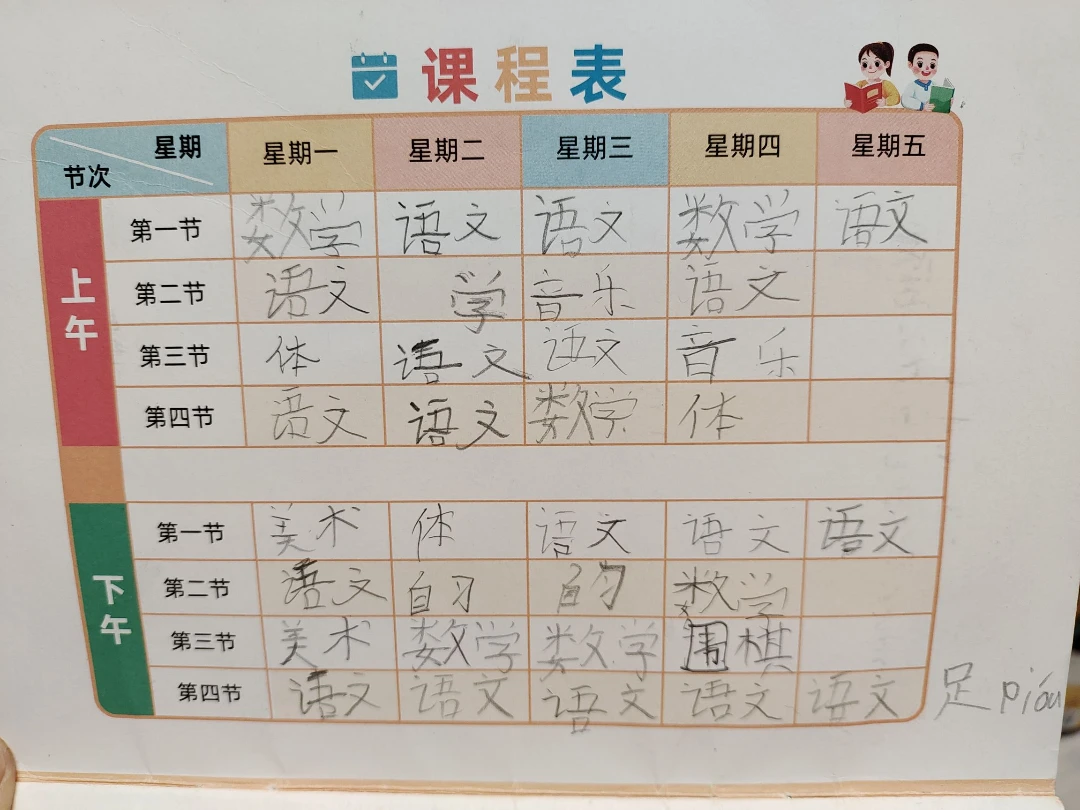 课程表
星期 节次 星期一 星期二 星期三 星期四 星期五
上午
第一节 数学 语文 语文 数学 语文
第二节 语文 学 音乐 语文
第三节 体 语文 语文 音乐
第四节 语文 语文 数学 体
下午
第一节 美术 体 语文 语文 语文
第二节 语文 自习 自习 数学
第三节 美术 数学 数学 围棋
第四节 语文 语文 语文 语文 语文 足 pióu